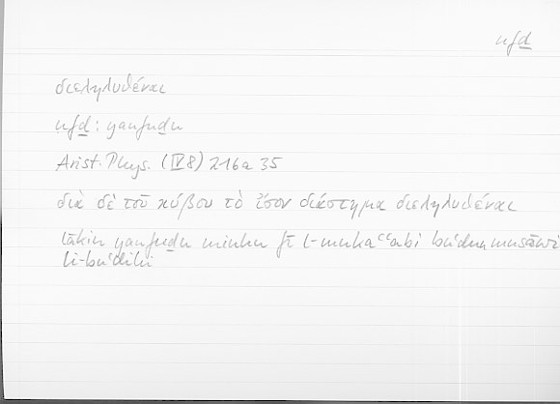 nfḏ
διεληλυθέναι
nfḏ : yanfuḏu
Arist. Phys. (IV 8) 216a 35
διὰ δὲ τοῦ κύβου τὸ ἴσον διάστημα διεληλυθέναι
lākin yanfuḏu minhu fī l-mukaʿʿabi buʿdun musāwi
li-buʿdihi